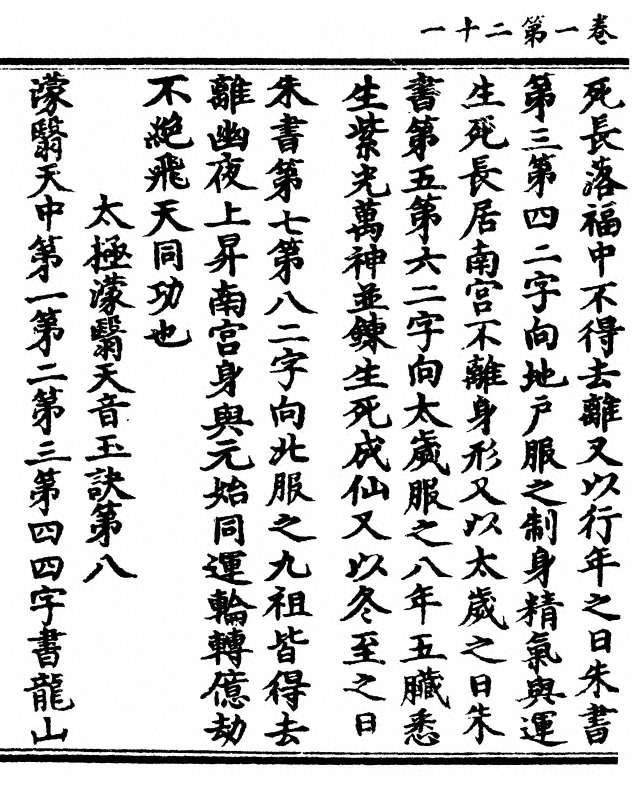 卷一第二十一
死長落福中不得去離又以行年之日朱書
第三第四二字向地戶服之制身精氣與運
生死長居南宮不離身形又以太歲之日朱
書第五第六二字向太歲服之八年五臟悉
生紫光萬神並鍊生死成仙又以冬至之日
朱書第七第八二字向北服之九祖皆得去
離幽夜上昇南宮身與元始同運輪轉億劫
不絕飛天同功也
太極濛翳天音玉訣第八
濛翳天中第一第二第三第四四字書龍山